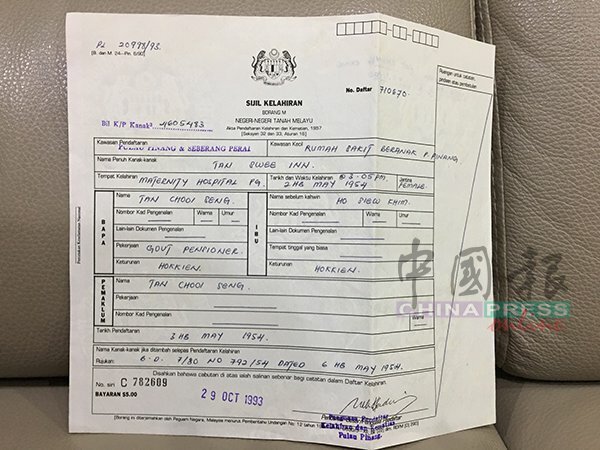 PL 20998/93.
[B. dan M. 24—Pin. 6/90]
No. Daftar 710670.
Ruangan untuk catatan, pindaan atau pembetulan
SIJIL KELAHIRAN
BORANG M
NEGERI-NEGERI TANAH MELAYU
Akta Pendaftaran Kelahiran dan Kematian, 1957
[Seksyen 32 dan 33, Aturan 16]
Bil K/P Kanak² 4605483
Kawasan Pendaftaran
PULAU PINANG & SEBERANG PERAI
Kawasan Kecil RUMAH SAKIT BERANAK P. PINANG
Nama Penuh Kanak-kanak TAN SWEE INN.
Tempat Kelahiran MATERNITY HOSPITAL PG.
Tarikh dan Waktu Kelahiran @ 3-05PM. 2HB MAY 1954
Jantina FEMALE.
BAPA
Nama TAN CHOOI SENG.
Nombor Kad Pengenalan Warna Umur
Lain-lain Dokumen Pengenalan
Pekerjaan GOVT PENSIONER.
Keturunan HOKKIEN.
IBU
Nama sebelum kahwin HO SIEW KHIM.
Nombor Kad Pengenalan Warna Umur
Lain-lain Dokumen Pengenalan
Tempat tinggal yang biasa
Keturunan HOKKIEN.
PEMAKLUM
Nama TAN CHOOI SENG.
Pekerjaan
Nombor Kad Pengenalan Warna
Tarikh Pendaftaran 3HB MAY 1954.
Nama Kanak-kanak jika ditambah selepas Pendaftaran Kelahiran
Rujukan: B.D. P/30 NO 792/54 DATED 6HB MAY 1954.
Disahkan bahawa cabutan di atas ialah salinan sebenar bagi catatan dalam Daftar Kelahiran.
No. siri C 782609
BAYARAN $5.00
29 OCT 1993
Kelahiran dan Kematian
Pulau Pinang.
Percetakan Kebangsaan Nasional
中國報
CHINA PRESS